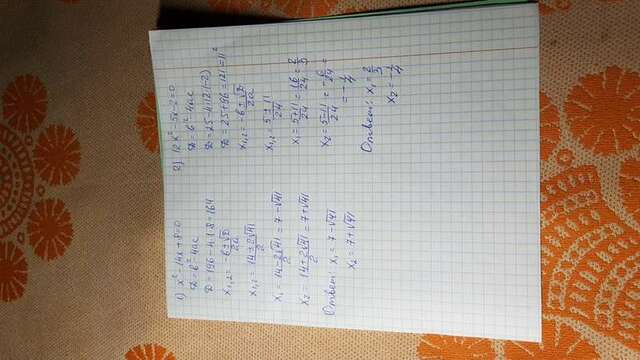 1) x² - 14x + 8 = 0
D = b² - 4ac
D = 196 - 4·1·8 = 164
x₁,₂ = -b ± √D / 2a
x₁,₂ = 14 ± 2√41 / 2
x₁ = 14 - 2√41 / 2 = 7 - √41
x₂ = 14 + 2√41 / 2 = 7 + √41
Ответ: x₁ = 7 - √41
x₂ = 7 + √41
2) 12x² - 5x - 2 = 0
D = b² - 4ac
D = 25 - 4·12·(-2)
D = 25 + 96 = 121 = 11²
x₁,₂ = -b ± √D / 2a
x₁,₂ = 5 ± 11 / 24
x₁ = 5 + 11 / 24 = 16 / 24 = 2 / 3
x₂ = 5 - 11 / 24 = -6 / 24 =
= - 1 / 4
Ответ: x₁ = 2 / 3
x₂ = - 1 / 4